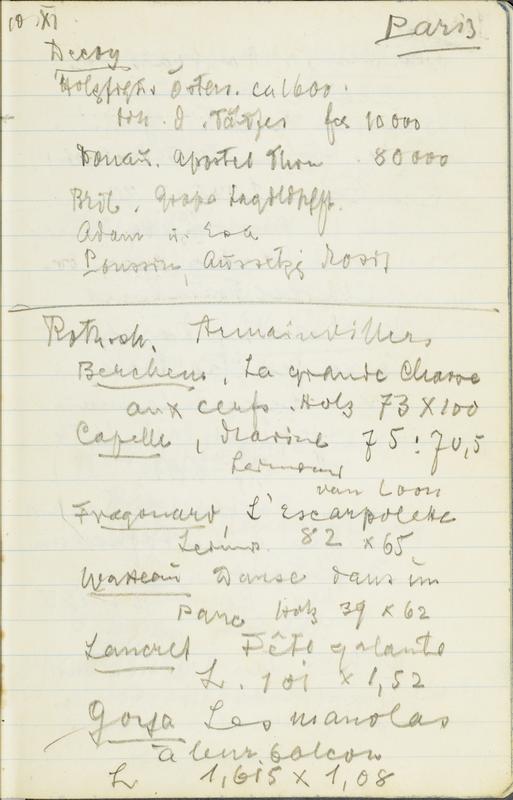 10 XI Paris
Decoy
Holzfig. Österr. ca 1600.
d. frs 10000
Donau. Apostel Thom 80000
Bril. Große
Adam u. Eva
Poussin, Aussetzg Mosis
Rothsch. Armainvillers
Berchem, La grande Chasse
aux cerfs. Holz 73 X 100
Capelle, Marine 75 : 70,5
Leinwand
van Loon
Fragonard, L'Escarpolette
Leinw. 82 x 65
Watteau Danse dans un
Parc Holz 39 x 62
Lancret Fête galante
L. 101 x 1,52
Goya Les manolas
à leur balcon
L 1,615 x 1,08